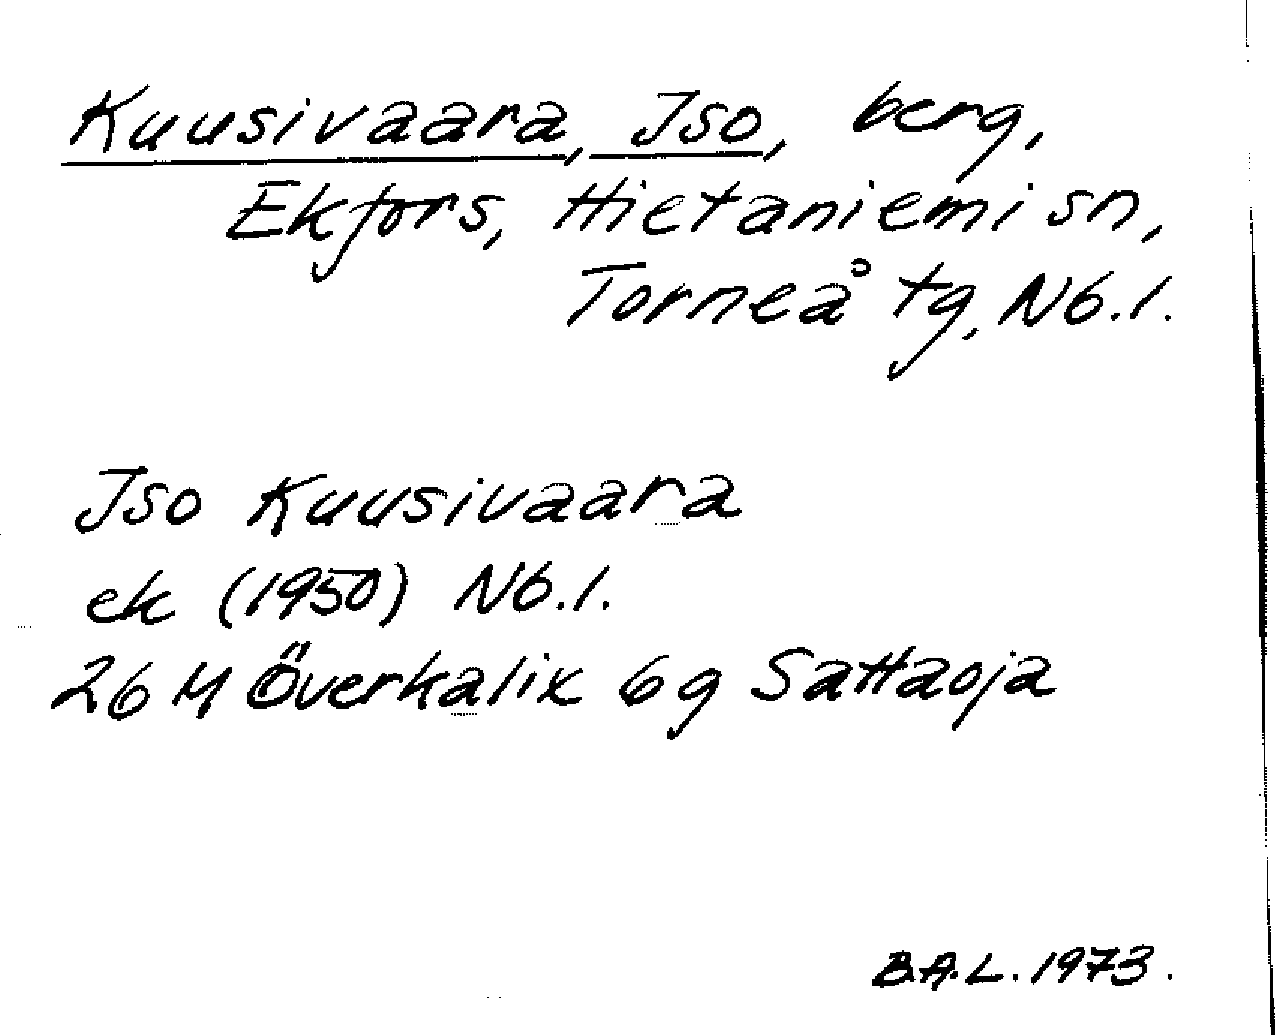 Kuusivaara, Iso, berg,
Ekfors, Hietaniemi sn,
Torneå tg, Nb.l.
Iso Kuusivaara
ek (1950) Nb.l.
26 M Överkalix 6g Sattaoja
B.A.L. 1973.